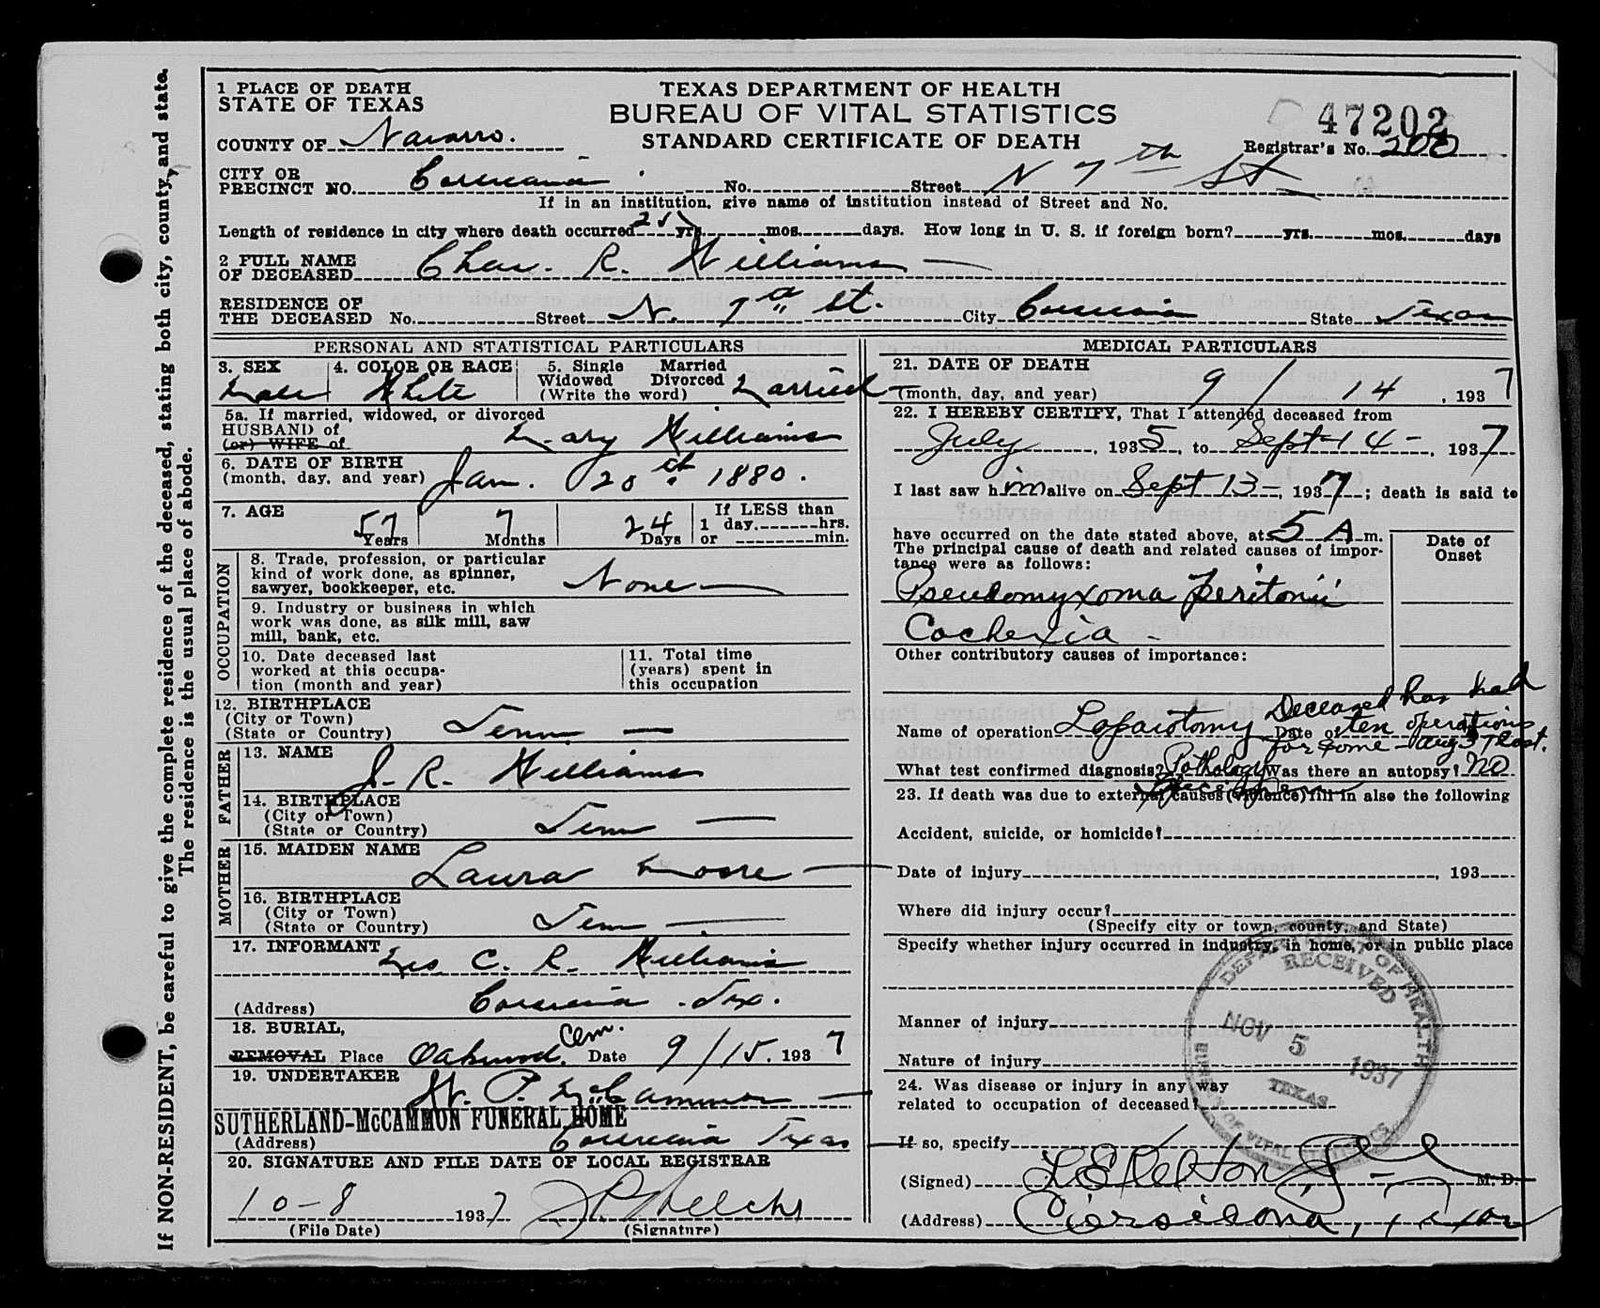 If NON-RESIDENT, be careful to give the complete residence of the deceased, stating both city, county, and state.
The residence is the usual place of abode.
1 PLACE OF DEATH
STATE OF TEXAS
COUNTY OF Navarro.
TEXAS DEPARTMENT OF HEALTH
BUREAU OF VITAL STATISTICS
STANDARD CERTIFICATE OF DEATH
47202
Registrar's No. 200
CITY OR
PRECINCT NO. Corsicana No. Street N 7th St
If in an institution, give name of institution instead of Street and No.
Length of residence in city where death occurred yrs. mos. days. How long in U. S. if foreign born? yrs. mos. days
2 FULL NAME
OF DECEASED Chas. R. Williams
RESIDENCE OF
THE DECEASED No. Street N. 7th St. City Corsicana State Texas
PERSONAL AND STATISTICAL PARTICULARS
3. SEX Male
4. COLOR OR RACE White
5. Single Married
Widowed Divorced
(Write the word) Married
5a. If married, widowed, or divorced
HUSBAND of
(or) WIFE of Mary Williams
6. DATE OF BIRTH
(month, day, and year) Jan. 1880.
7. AGE
57 Years 7 Months 24 Days
If LESS than
1 day, hrs.
or min.
OCCUPATION
8. Trade, profession, or particular
kind of work done, as spinner,
sawyer, bookkeeper, etc. None
9. Industry or business in which
work was done, as silk mill, saw
mill, bank, etc.
10. Date deceased last
worked at this occupa-
tion (month and year)
11. Total time
(years) spent in
this occupation
12. BIRTHPLACE
(City or Town)
(State or Country) Tenn
FATHER
13. NAME J. R. Williams
14. BIRTHPLACE
(City or Town)
(State or Country) Tenn
MOTHER
15. MAIDEN NAME Laura Moore
16. BIRTHPLACE
(City or Town)
(State or Country) Tenn
17. INFORMANT Mrs C. R. Williams
(Address) Corsicana Tex.
18. BURIAL,
REMOVAL Place Oakwood Cem. Date 9/15. 1937
19. UNDERTAKER W. P. McCammon
SUTHERLAND-McCAMMON FUNERAL HOME
(Address) Corsicana Texas
20. SIGNATURE AND FILE DATE OF LOCAL REGISTRAR
10-8 1937
(File Date) (Signature)
MEDICAL PARTICULARS
21. DATE OF DEATH
(month, day, and year) 9/14, 1937
22. I HEREBY CERTIFY, That I attended deceased from
July, 1935, to Sept-14-, 1937
I last saw him alive on Sept 13-, 1937; death is said to
have occurred on the date stated above, at 5 A m.
The principal cause of death and related causes of impor-
tance were as follows:
Date of
Onset
Pseudomyxoma Peritonii
Cachexia -
Other contributory causes of importance:
Deceased has had
Name of operation Laparotomy Date of ten operations
for some - Aug 37 last.
What test confirmed diagnosis? Pathology Was there an autopsy? no
Specimen
23. If death was due to external causes (violence) fill in also the following
Accident, suicide, or homicide?
Date of injury , 193
Where did injury occur?
(Specify city or town, county, and State)
Specify whether injury occurred in industry, in home, or in public place
Manner of injury
Nature of injury
24. Was disease or injury in any way
related to occupation of deceased?
If so, specify
(Signed) M. D.
(Address) Corsicana, Texas
DEPARTMENT OF HEALTH
RECEIVED
NOV 5 1937
TEXAS
BUREAU OF VITAL STATISTICS